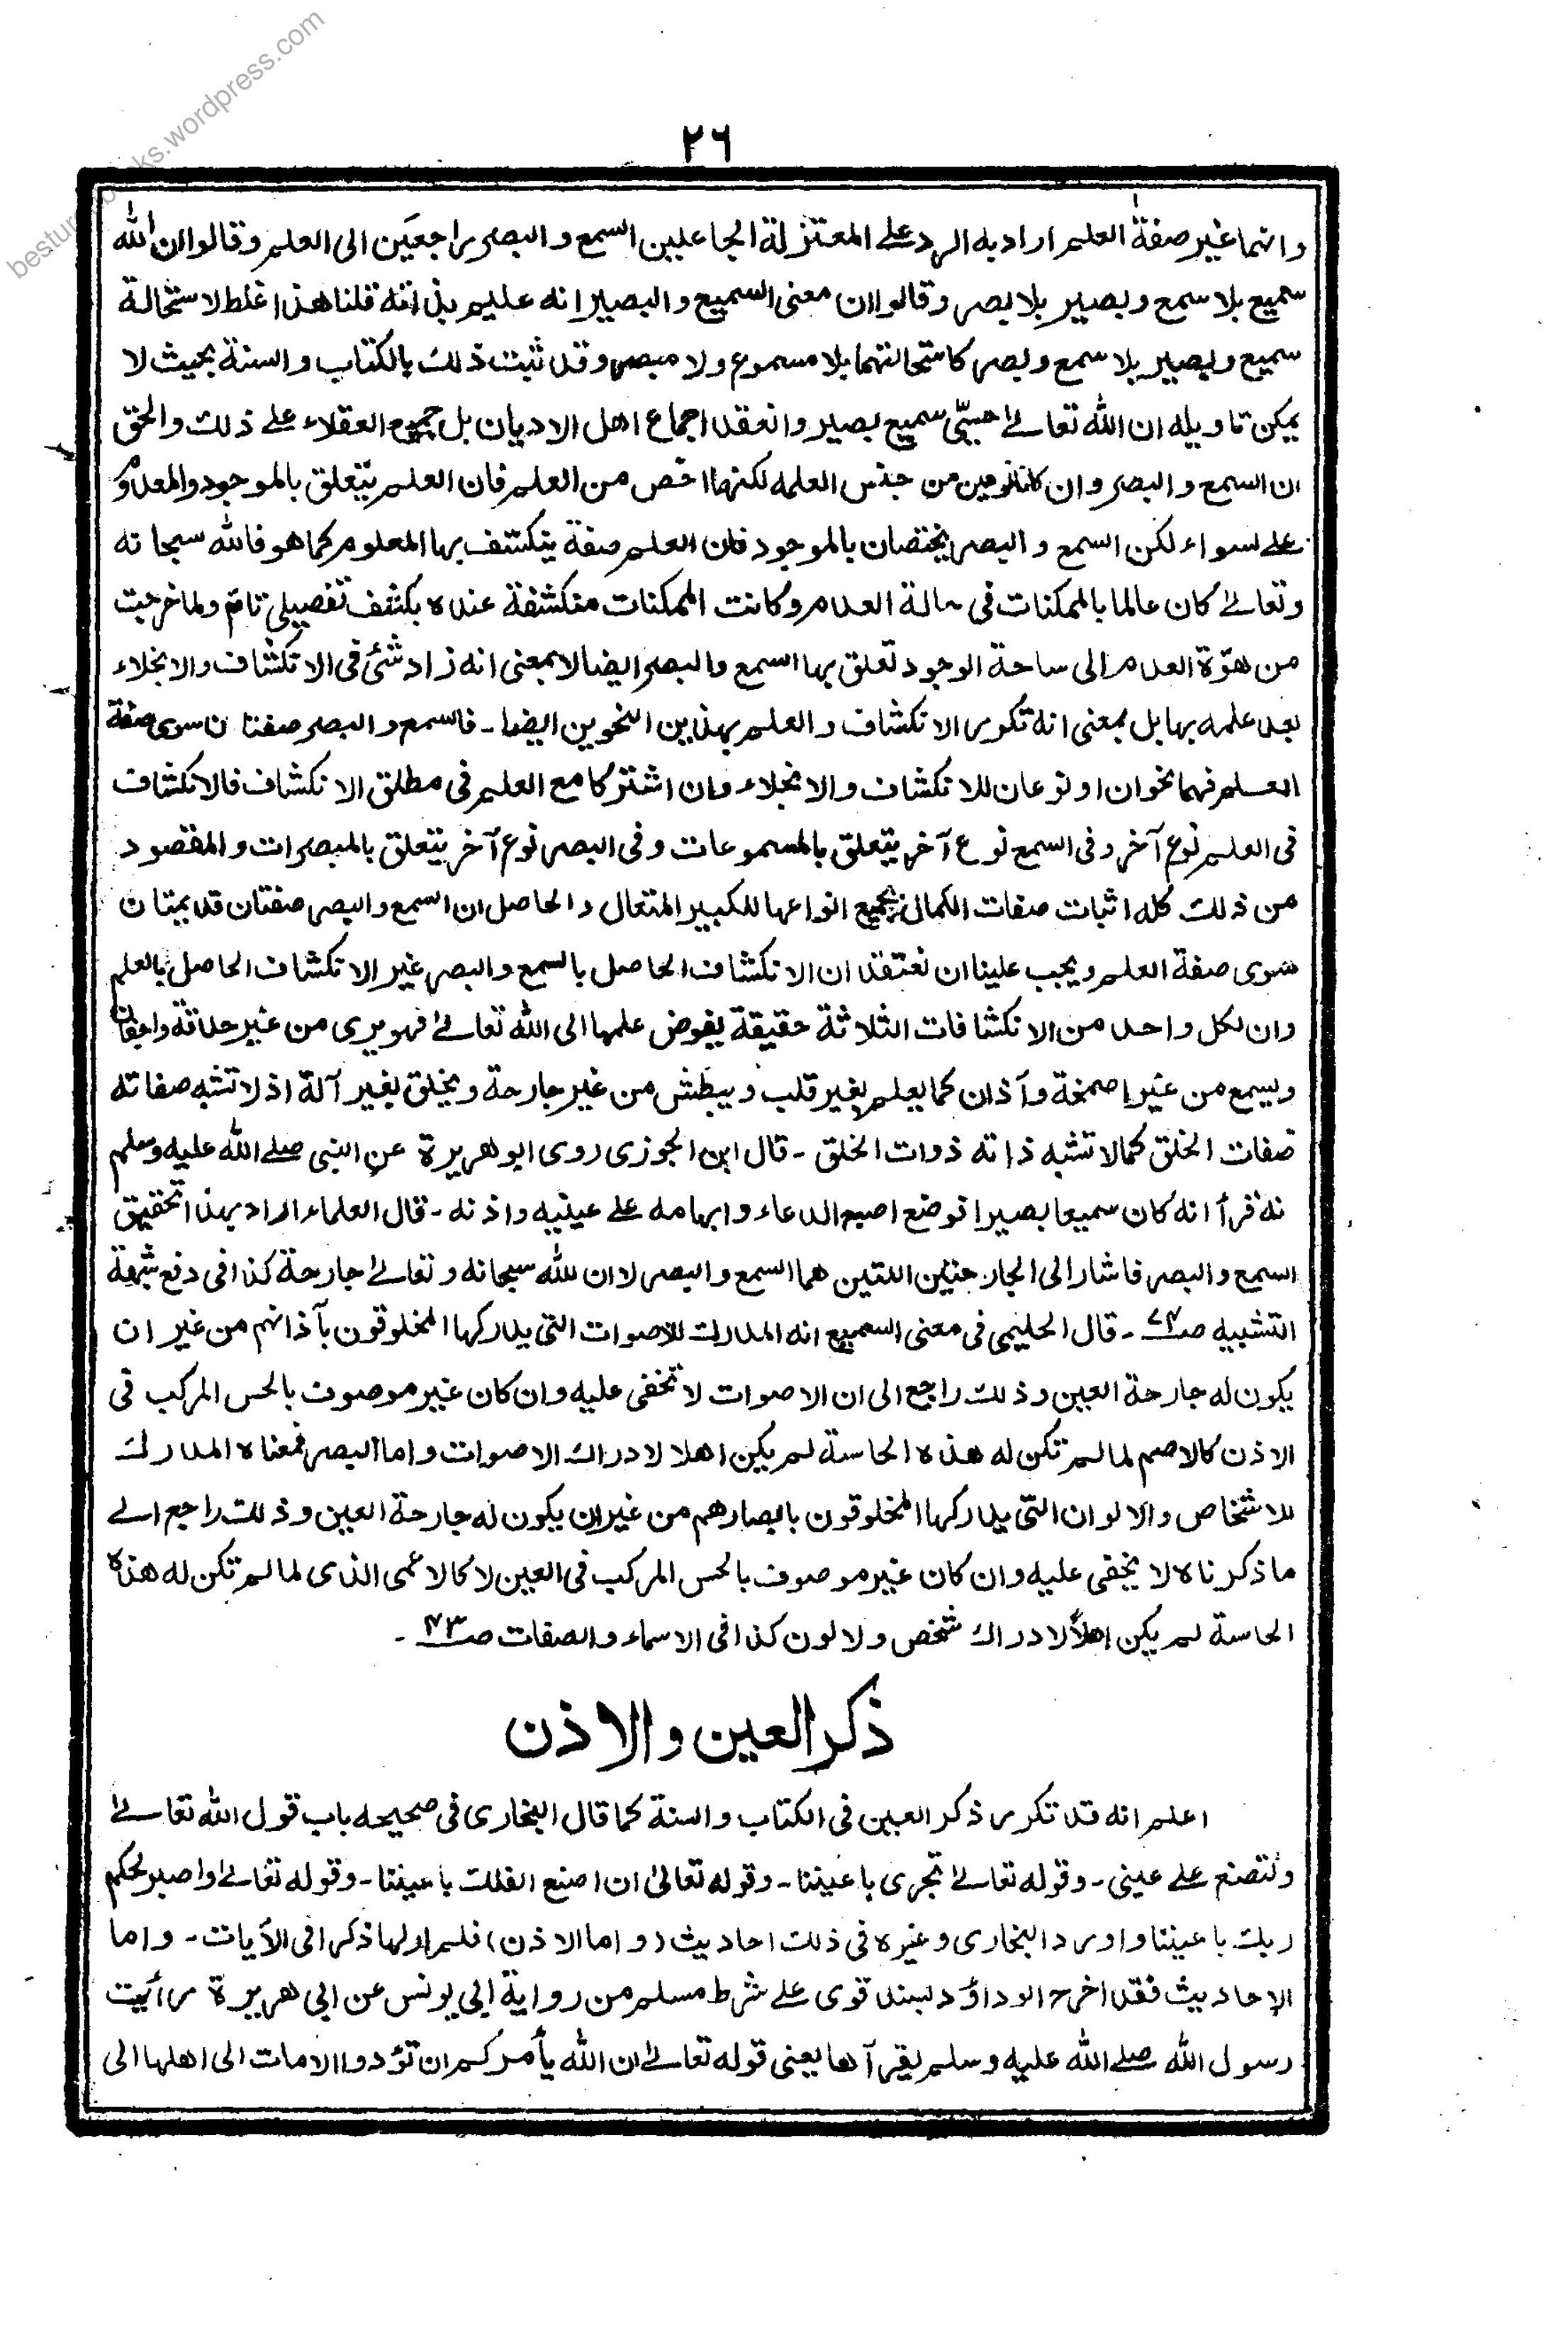 besturdubooks.wordpress.com
٢٦
وانهما غير صفة العلم اراد به الرد على المعتزلة الجاعلين السمع والبصر راجعين الى العلم وقالوا ان الله
سميع بلا سمع وبصير بلا بصر وقالوا ان معنى السميع والبصير انه عليم بذاته قلنا هذا غلط لاستحالة
سميع وبصير بلا سمع وبصر كاستحالتهما بلا مسموع ولا مبصر وقد ثبت ذلك بالكتاب والسنة بحيث لا
يمكن تاويله ان الله تعالى حيّ سميع بصير وانعقد اجماع اهل الاديان بل جميع العقلاء على ذلك والحق
ان السمع والبصر وان كانا نوعين من جنس العلم لكنهما اخص من العلم فان العلم يتعلق بالموجود والمعدوم
على سواء لكن السمع والبصر يختصان بالموجود فان العلم صفة ينكشف بها المعلوم كما هو فالله سبحانه
وتعالى كان عالما بالممكنات فى حالة العدم وكانت الممكنات منكشفة عنده بكشف تفصيلى تام ولما خرجت
من هوّة العدم الى ساحة الوجود تعلق بها السمع والبصر ايضا لا بمعنى انه زاد شئ فى الانكشاف والانجلاء
بعد علمه بها بل بمعنى انه تكرر الانكشاف والعلم بهذين النحوين ايضا - فالسمع والبصر صفتان سوى صفة
العلم فهما نحوان او نوعان للانكشاف والانجلاء وان اشتركا مع العلم فى مطلق الانكشاف فالانكشاف
فى العلم نوع آخر وفى السمع نوع آخر يتعلق بالمسموعات وفى البصر نوع آخر يتعلق بالمبصرات والمقصود
من ذلك كله اثبات صفات الكمال بجميع انواعها للكبير المتعال والحاصل ان السمع والبصر صفتان قديمتان
سوى صفة العلم ويجب علينا ان نعتقد ان الانكشاف الحاصل بالسمع والبصر غير الانكشاف الحاصل بالعلم
وان لكل واحد من الانكشافات الثلاثة حقيقة يفوض علمها الى الله تعالى فهو يرى من غير حدقة واجفان
ويسمع من غير اصمخة وآذان كما يعلم بغير قلب ويبطش من غير جارحة ويخلق بغير آلة اذ لا تشبه صفاته
صفات الخلق كما لا تشبه ذاته ذوات الخلق - قال ابن الجوزى روى ابو هريرة عن النبى صلى الله عليه وسلم
نه قرأ انه كان سميعا بصيرا فوضع اصبع الدعاء وابهامه على عينيه واذنه - قال العلماء اراد بهذا تحقيق
السمع والبصر فاشار الى الجارحتين اللتين هما السمع والبصر لا ان لله سبحانه وتعالى جارحة كذا فى دفع شبهة
التشبيه صـ - قال الحليمى فى معنى السميع انه المدرك للاصوات التى يدركها المخلوقون بآذانهم من غير ان
يكون له جارحة العين وذلك راجع الى ان الاصوات لا تخفى عليه وان كان غير موصوف بالحس المركب فى
الاذن كالاصم لما لم تكن له هذه الحاسة لم يكن اهلا لادراك الاصوات واما البصر فمعناه المدرك
للاشخاص والالوان التى يدركها المخلوقون بابصارهم من غير ان يكون له جارحة العين وذلك راجع الى
ما ذكرناه لا يخفى عليه وان كان غير موصوف بالحس المركب فى العين لا كالاعمى الذى لما لم تكن له هذه
الحاسة لم يكن اهلاً لادراك شخص ولا لون كذا فى الاسماء والصفات صـ٤٣ -
ذكر العين والاذن
اعلم انه قد تكرر ذكر العين فى الكتاب والسنة كما قال البخارى فى صحيحه باب قول الله تعالى
ولتصنع على عينى - وقوله تعالى تجرى باعيننا - وقوله تعالىٰ ان اصنع الفلك باعيننا - وقوله تعالى واصبر لحكم
ربك باعيننا واورد البخارى وغيره فى ذلك احاديث (و اما الاذن) فلم ار لها ذكرا فى الآيات - واما
الاحاديث فقد اخرج ابو داؤد بسند قوى على شرط مسلم من رواية ابى يونس عن ابى هريرة رأيت
رسول الله صلى الله عليه وسلم يقرآها يعنى قوله تعالى ان الله يأمركم ان تؤدوا الامات الى اهلها الى